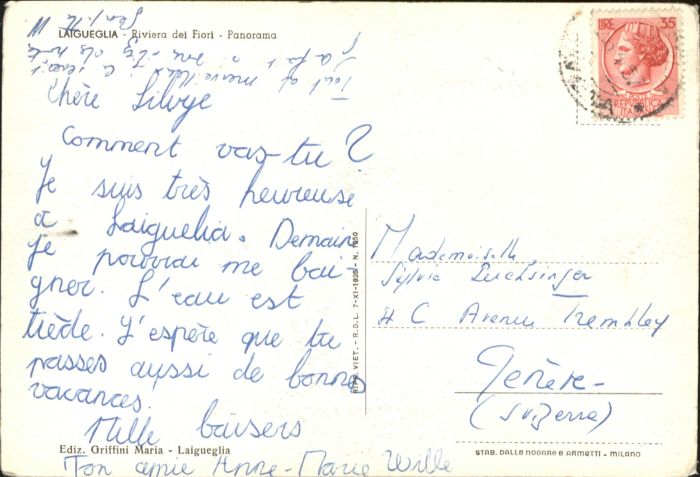 LAIGUEGLIA - Riviera dei Fiori - Panorama
Tout est merveilleux
Chère Silvye
Comment vas-tu?
Je suis très heureuse
à Laiguelia. Demain
je pourrai me bai-
gner. L'eau est
tiède. J'espère que tu
passes aussi de bonnes
vacances.
Mille baisers
Ton amie Anne-Marie Wille
Ediz. Griffini Maria - Laigueglia
RIPR. VIET. - R.D.L. 7-XI-1925 - N. 1950
LIRE 35
REPVBBLICA
ITALIANA
Mademoiselle
Sylvia Luchsinger
4 C Avenue Trembley
Genève-
(Svizzera)
STAB. DALLE NOGARE E ARMETTI - MILANO